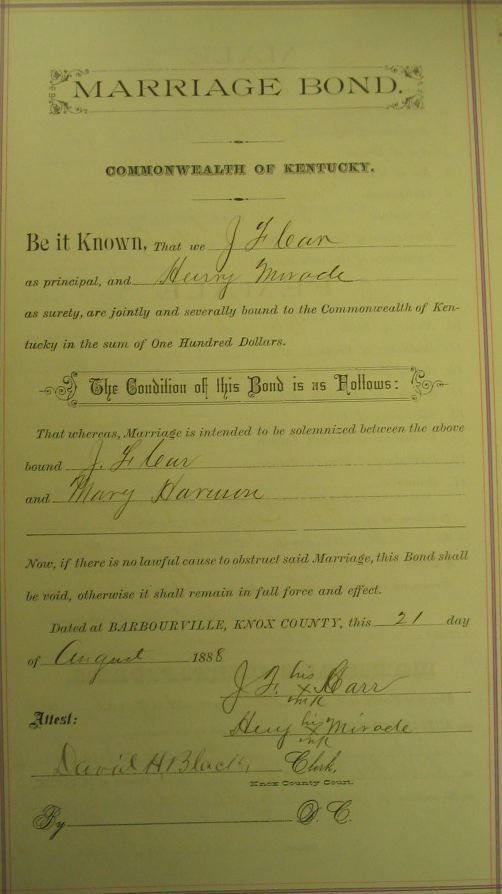 MARRIAGE BOND.
COMMONWEALTH OF KENTUCKY.
Be it Known, That we J F Carr
as principal, and Henry Mirade
as surely, are jointly and severally bound to the Commonwealth of Ken-
tucky in the sum of One Hundred Dollars.
The Condition of this Bond is as Follows:
That whereas, Marriage is intended to be solemnized between the above
bound J. F Carr
and Mary Harmon
Now, if there is no lawful cause to obstruct said Marriage, this Bond shall
be void, otherwise it shall remain in full force and effect.
Dated at BARBOURVILLE, KNOX COUNTY, this 21 day
of August 1888
J. F. his X mk Carr
Attest: Heny his X mk Mirade
David H. Black, Clerk,
Knox County Court.
By D. C.